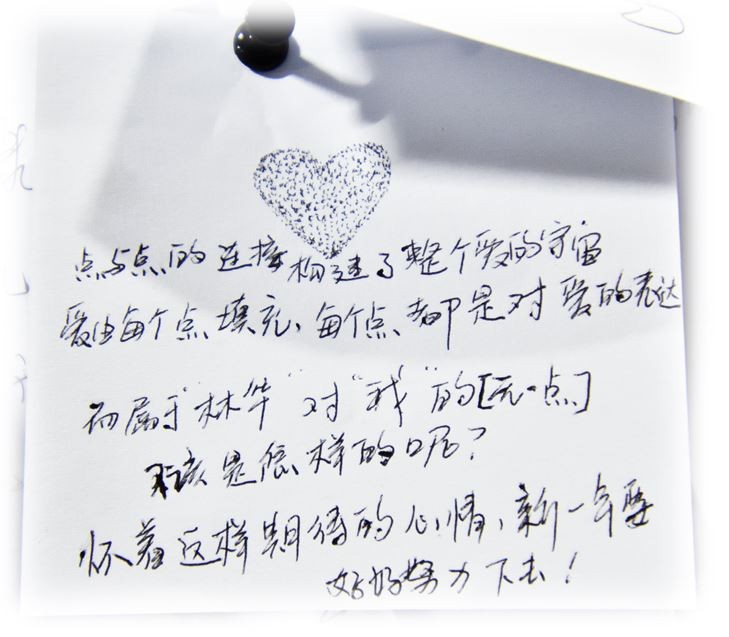 点与点的连接构建了整个爱的宇宙
爱由每个点填充、每个点都是对爱的表达
而属于“林华”对“我”的[元·点]
该是怎样的呢？
怀着这样期待的心情、新一年要
好好努力下去！